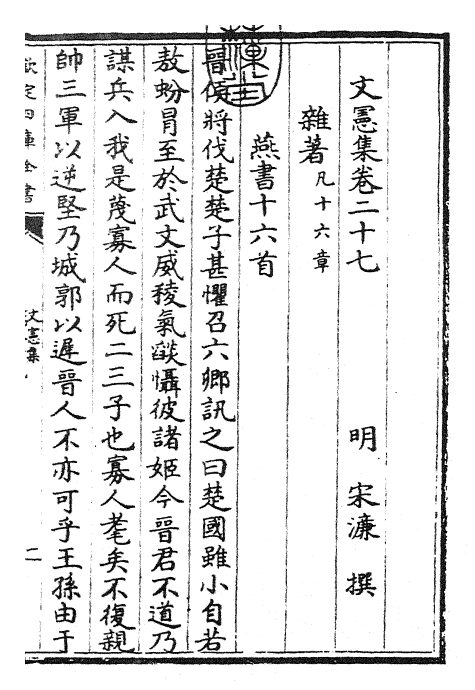 文憲集卷二十七
明 宋濂 撰
雜著凡十六章
燕書十六首
晉侯將伐楚楚子甚懼召六卿訊之曰楚國雖小自若
敖蚡冒至於武文威稜氣燄懾彼諸姬今晉君不道乃
謀兵入我是蔑寡人而死二三子也寡人耄矣不復親
帥三軍以逆堅乃城郭以遲晉人不亦可乎王孫由于
欽定四庫全書
文憲集